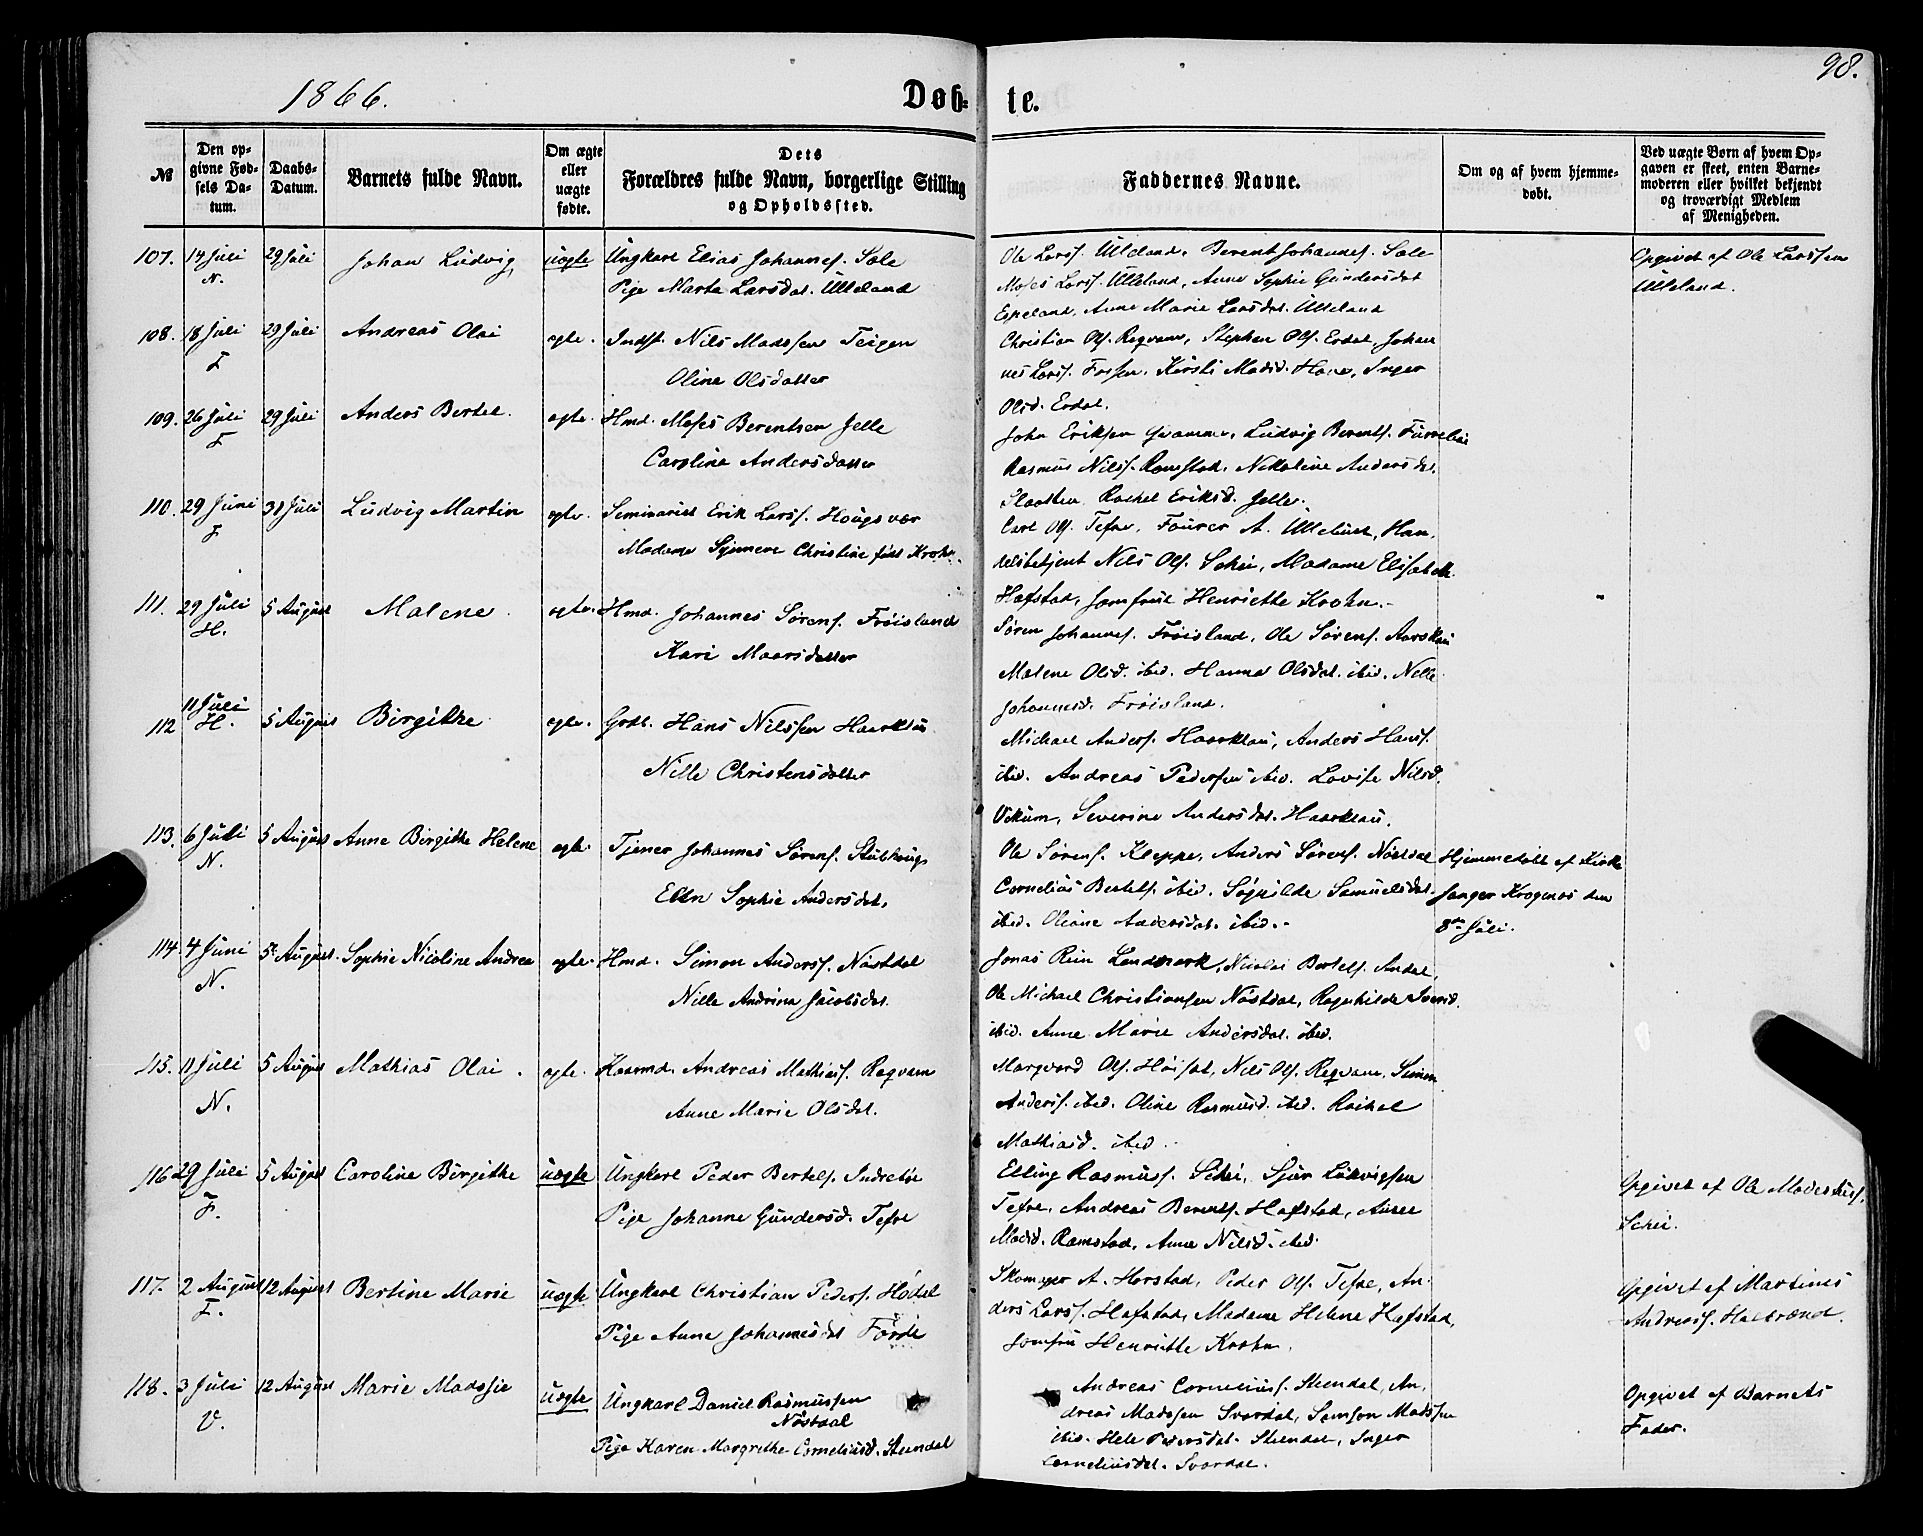 1866.
Døb-
te.
98.
№
Den op-
givne Fød-
sels Da-
tum.
Daabs-
Datum.
Barnets fulde Navn.
Om ægte
eller
uægte
fødte.
Dets
Forældres fulde Navn, borgerlige Stilling
og Opholdssted.
Faddernes Navne.
Om og af hvem hjemme-
døbt.
Ved uægte Børn af hvem Op-
gaven er skeet, enten Barne-
moderen eller hvilket bekjendt
og troværdigt Medlem
af Menigheden.
107. 14 Juli 29 Juli Johan Ludvig uægte Ungkarl Elias Johannes. Sole
N. Pige Marta Larsdat. Ulleland
Ole Larss. Ulleland, Berent Johannes. Sole
Moses Larss. Ulleland, Anne Sophie Gundersdat
Espeland, Anne Marie Larsdat. Ulleland
Opgivet af Ole Larssen
Ulleland.
108. 18 Juli 29 Juli Andreas Olai ægte. Indst. Nils Madssen Teigen
F Oline Olsdatter
Christian Ols. Reqvam, Stephen Ols. Erdal, Johan
nes Larss. Fossen, Kirsti Madsd. Hove, Inger
Olsd. Erdal.
109. 26 Juli 29 Juli Anders Bertel. ægte. Hmd. Moses Berentsen Jelle
F Caroline Andersdatter
John Eriksen Qvamme, Ludvig Berents. Furrelie
Rasmus Nilss. Ramstad, Nikoline Andersdat.
Slaatten Rachel Eriksd. Jelle.
110. 29 Juni 31 Juli Ludvig Martin ægte. Seminarist Erik Larss. Hougsvær
F Madame Christine født Krohn.
Carl Ols. Tefre, A. Ulletun, Han
delsbetjent Nils Ols. Schei, Madame Elisabeth
Hafstad, Jomfrue Henriette Krohn.
111. 29 Juli 5 August Malene ægte. Hmd. Johannes Sørens. Frøisland
H. Kari Maarsdatter
Søren Johannes. Frøisland, Ole Sørens. Aarsklau
Malene Olsd. ibid. Hanna Olsdat. ibid. Nille
Johannesd. Frøisland.
112 11 Juli 5 August Birgithe ægte. Grdb. Hans Nilssen Haarklau
H. Nille Christensdatter
Michael Anders. Haarklau, Anders Hanss.
ibid. Andreas Pedersen ibid. Lovise Nilsd.
Vekum, Severine Andersdat. Haarklau.
113. 6 Juli 5 August Anne Birgithe Helene ægte. Tjener Johannes Sørens. Stulhaug
N. Ellen Sophie Andersdat.
Ole Sørens. Kleppe, Anders Sørens. Nøstdal
Cornelius Bertels. ibid. Søgnilde Samuelsdat.
ibid. Oliane Andersdat. ibid.
Hjemmedøbt af Kirke
sanger Krognæs den
8de Juli.
114. 4 Juni 5 August. Sophie Nicoline Andrea ægte. Hmd. Simon Anderss. Nøstdal
N. Nille Andrina Jacobsdat.
Jonas Rein Landmark, Nicolai Bertels. Andal,
Ole Michael Christiansen Nøstdal, Ragnhilde Iversd.
ibid. Anne Marie Andersdat. ibid.
115. 11 Juli 5 August Mathias Olai. ægte. Huusmd. Andreas Mathiass. Reqvam
N. Anne Marie Olsdat.
Marqvard Ols. Høisæt, Nils Ols. Reqvam, Simon
Anderss. ibid. Oline Rasmusd. ibid. Rachel
Mathiasd. ibid.
116 29 Juli 5 August Caroline Birgithe uægte Ungkarl Peder Bertels. Indrebø
F. Pige Johanne Gundersd. Tefre
Elling Rasmuss. Schei, Sjur Ludvigsen
Tefre, Andreas Berents. Hafstad, Anne
Madsd. Ramstad, Anne Nilsd. ibid.
Opgivet af Ole Modestuss.
Schei.
117. 2 August 12 August Bertine Marie uægte Ungkarl Christian Peders. Hodal
F. Pige Anne Johannesdat Førde
Skomager A. Horstad, Peder Ols. Tefre, An-
ders Larss. Hafstad, Madame Helene Hafstad,
Jomfru Henriette Krohn.
Opgivet af Martines
Andreass. Halbrænd.
118. 3 Juli 12 August Marie Madssie uægte Ungkarl Daniel Rasmussen
V. Nøsdal
Pige Karen Margrethe Corneliusd. Steindal
Andreas Corneliuss. Steendal, An-
dreas Madssen Svardal, Samson Madssen
ibid. Hele Pedersdat. Steendal, Inger
Corneliusdat. Svardal.
Opgivet af Barnets
Fader.